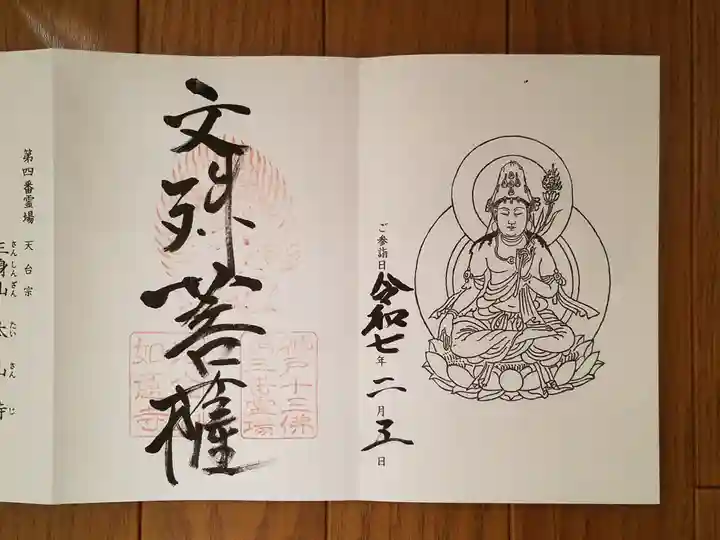 ご参詣日 令和七年二月五日
文殊菩薩
神戸十三佛
第三番霊場
如意寺
第四番霊場 天台宗
三身山 太山寺
さんしんざん たいさんじ